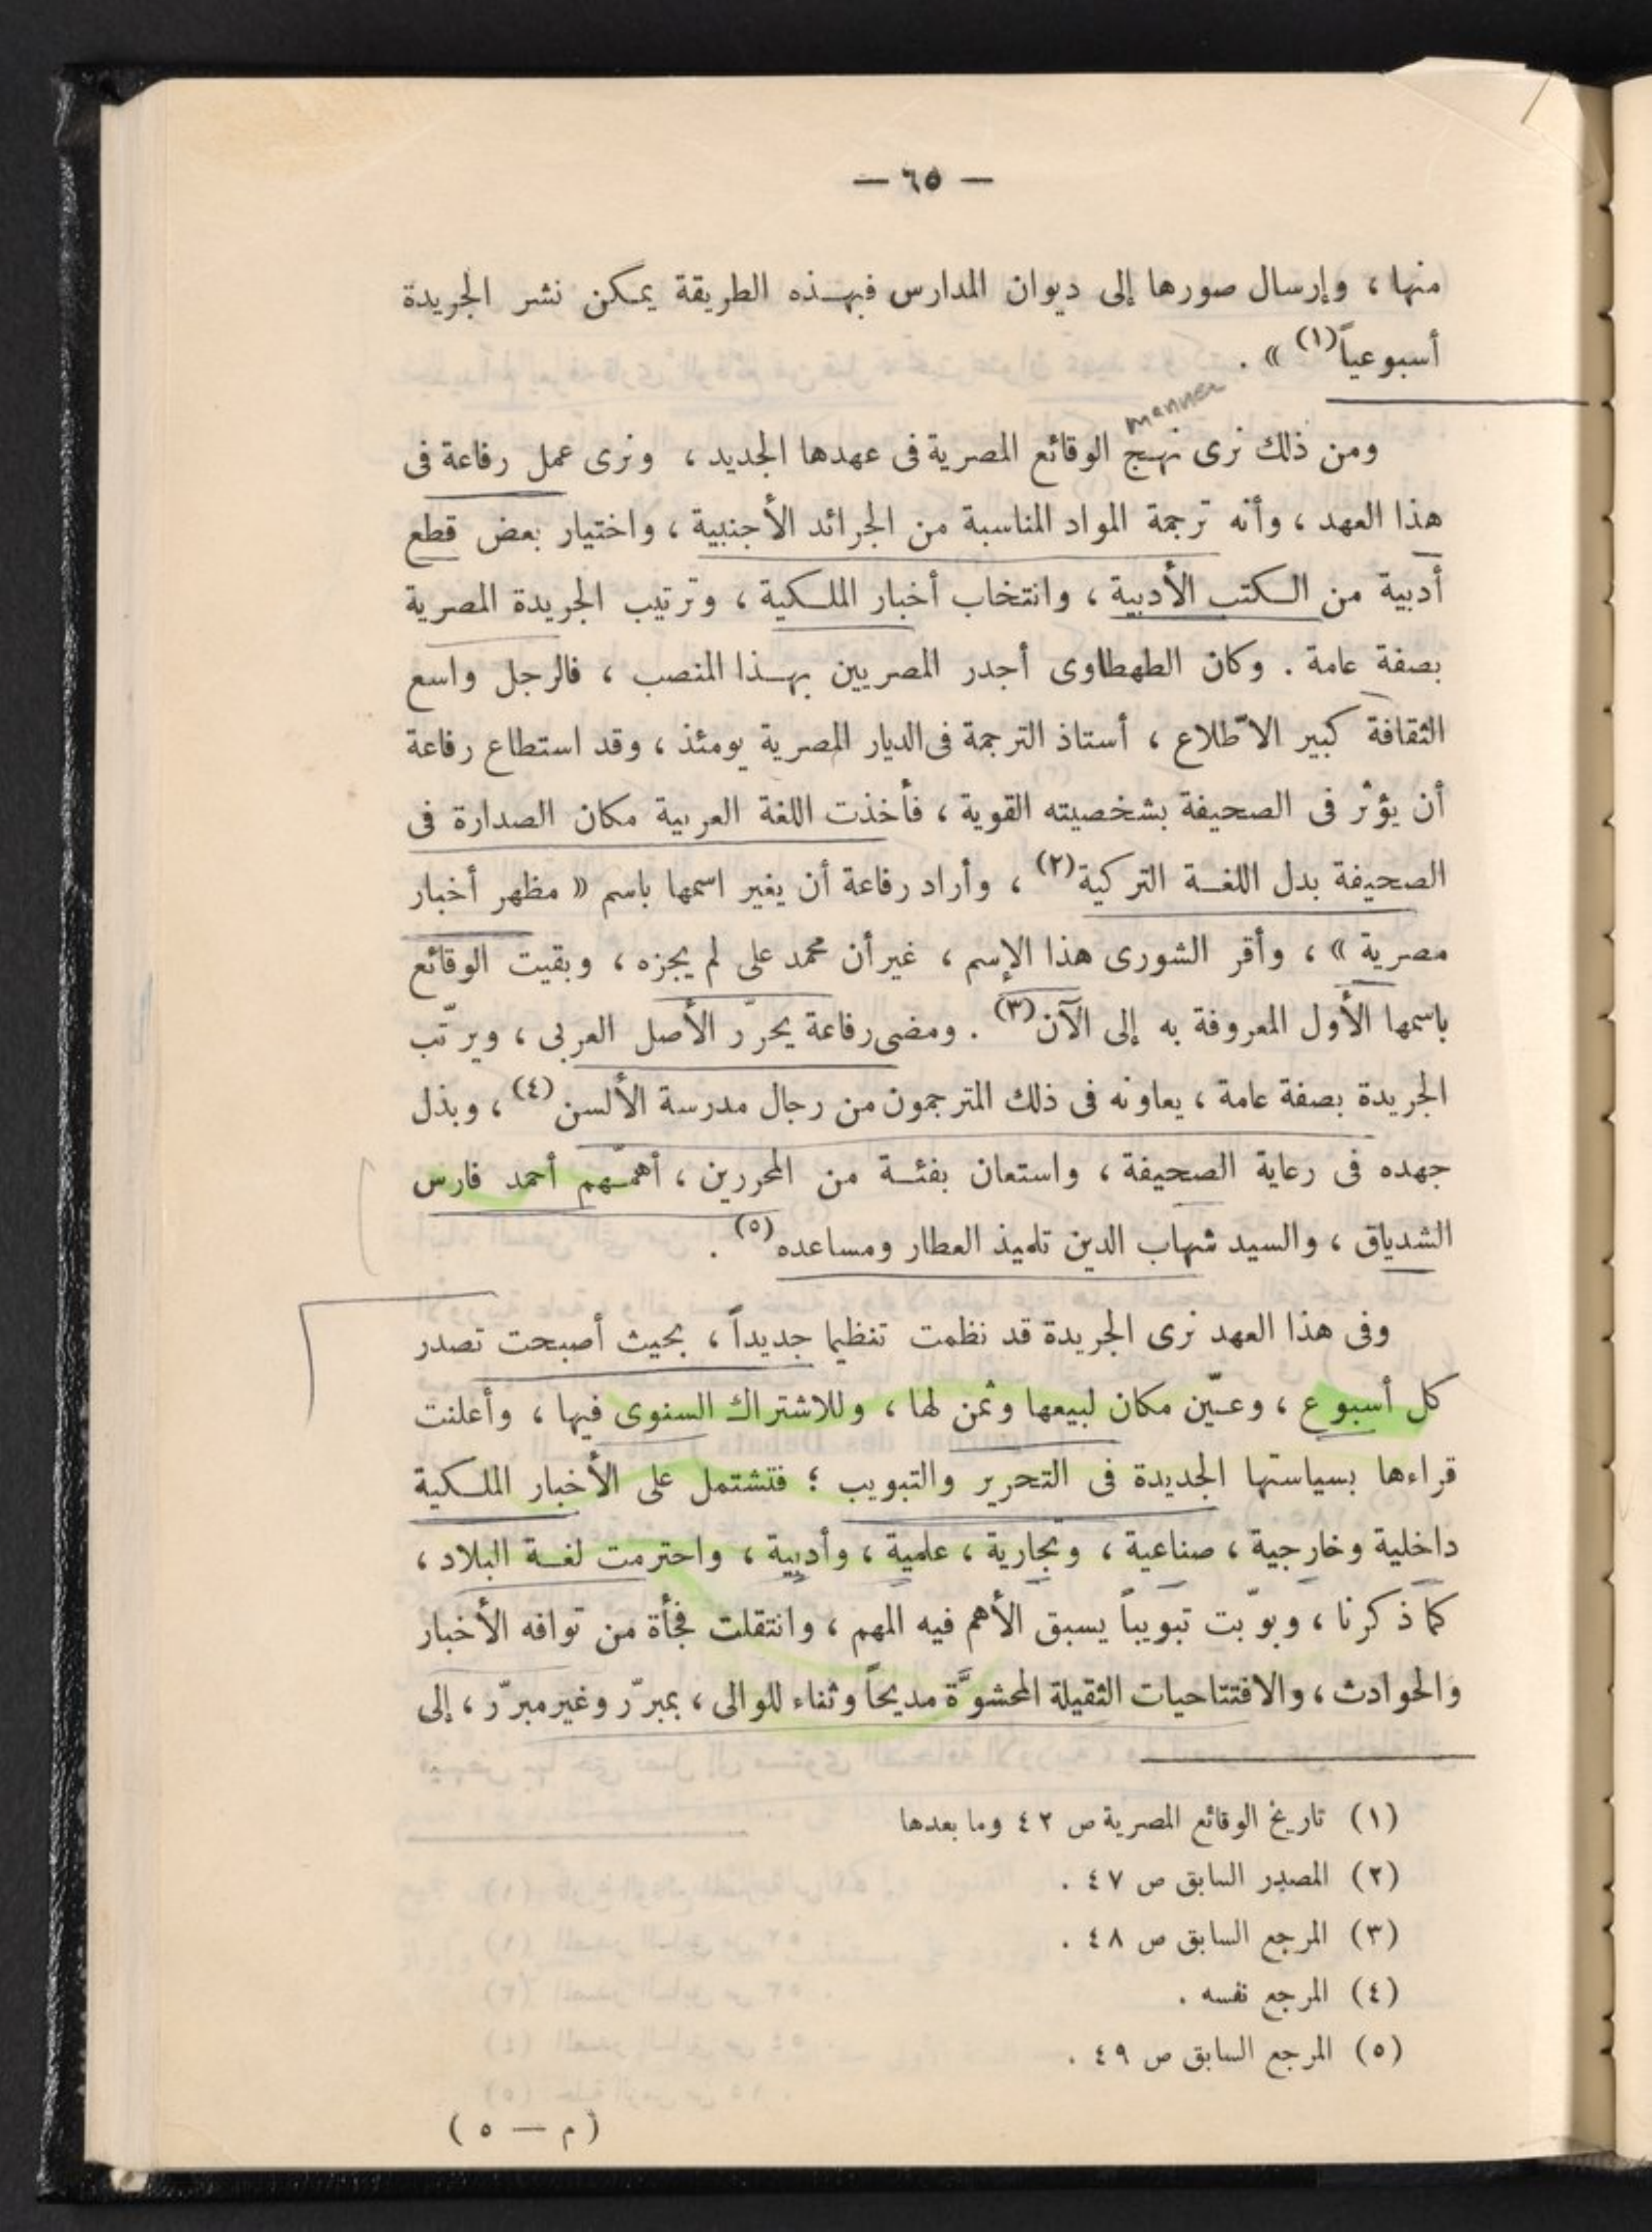 — ٦٥ —
منها ، وإرسال صورها إلى ديوان المدارس فبهذه الطريقة يمكن نشر الجريدة
أسبوعياً(١) » .
manner
ومن ذلك نرى نهج الوقائع المصرية فى عهدها الجديد ، ونرى عمل رفاعة فى
هذا العهد ، وأنه ترجمة المواد المناسبة من الجرائد الأجنبية ، واختيار بعض قطع
أدبية من الكتب الأدبية ، وانتخاب أخبار الملكية ، وترتيب الجريدة المصرية
بصفة عامة . وكان الطهطاوى أجدر المصريين بهذا المنصب ، فالرجل واسع
الثقافة كبير الاطّلاع ، أستاذ الترجمة فى الديار المصرية يومئذ ، وقد استطاع رفاعة
أن يؤثر فى الصحيفة بشخصيته القوية ، فأخذت اللغة العربية مكان الصدارة فى
الصحيفة بدل اللغة التركية(٢) ، وأراد رفاعة أن يغير اسمها باسم « مظهر أخبار
مصرية » ، وأقر الشورى هذا الإسم ، غير أن محمد على لم يجزه ، وبقيت الوقائع
باسمها الأول المعروفة به إلى الآن(٣) . ومضى رفاعة يحرّر الأصل العربى ، ويرتّب
الجريدة بصفة عامة ، يعاونه فى ذلك المترجمون من رجال مدرسة الألسن(٤) ، وبذل
جهده فى رعاية الصحيفة ، واستعان بفئة من المحررين ، أهمّهم أحمد فارس
الشدياق ، والسيد شهاب الدين تلميذ العطار ومساعده(٥) .
وفى هذا العهد نرى الجريدة قد نظمت تنظيما جديداً ، بحيث أصبحت تصدر
كل أسبوع ، وعيّن مكان لبيعها وثمن لها ، وللاشتراك السنوى فيها ، وأعلنت
قراءها بسياستها الجديدة فى التحرير والتبويب ؛ فتشتمل على الأخبار الملكية
داخلية وخارجية ، صناعية ، وتجارية ، علمية ، وأدبية ، واحترمت لغة البلاد ،
كما ذكرنا ، وبوّبت تبويباً يسبق الأهم فيه المهم ، وانتقلت فجأة من توافه الأخبار
والحوادث ، والافتتاحيات الثقيلة المحشوَّة مديحاً وثناء للوالى ، بمبرّر وغير مبرّر ، إلى
(١) تاريخ الوقائع المصرية ص ٤٢ وما بعدها
(٢) المصدر السابق ص ٤٧ .
(٣) المرجع السابق ص ٤٨ .
(٤) المرجع نفسه .
(٥) المرجع السابق ص ٤٩ .
( م — ٥ )